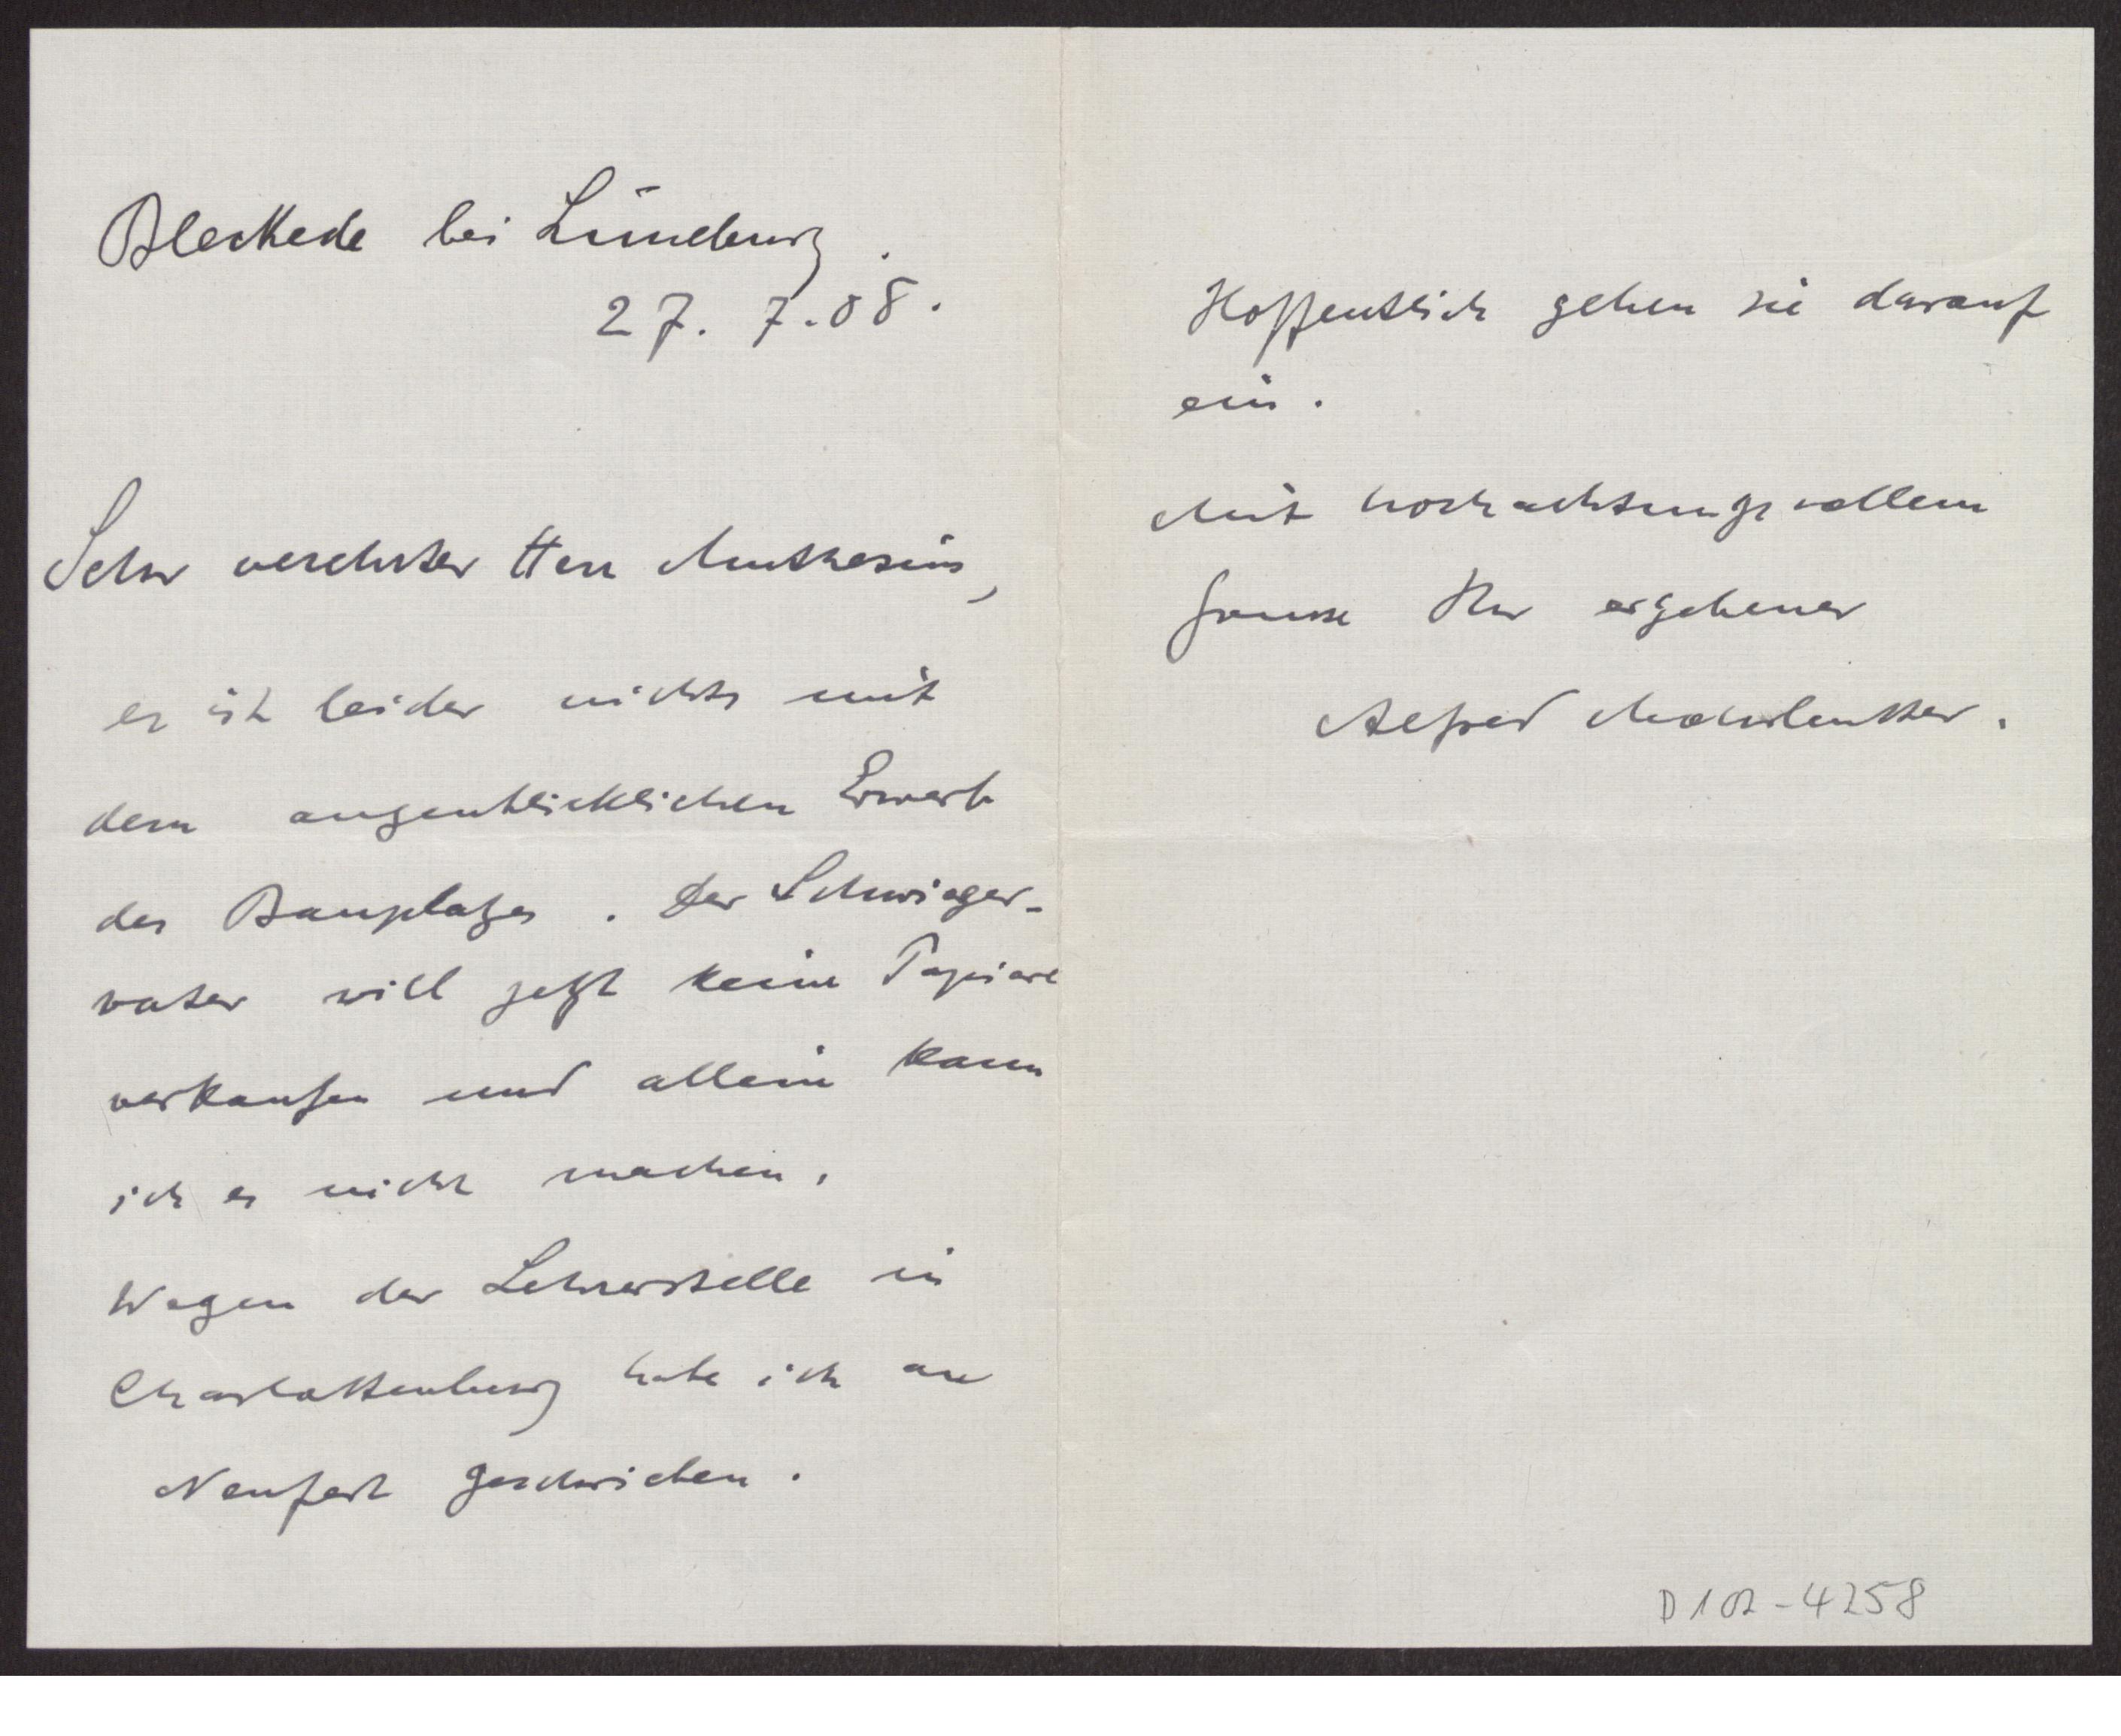 Bleckede bei Lüneburg.
27. 7. 08.
Sehr verehrter Herr Muthesius,
es ist leider nichts mit
dem augenblicklichen Erwerb
des Bauplatzes. Der Schwieger-
vater will jetzt keine Papiere
verkaufen und allein kann
ich es nicht machen.
Wegen der Lehrerstelle in
Charlottenburg habe ich an
Neufert geschrieben.
Hoffentlich gehen sie darauf
ein.
Mit hochachtungsvollem
Grusse Ihr ergebener
Alfred Mohrbutter.
D 102-4258